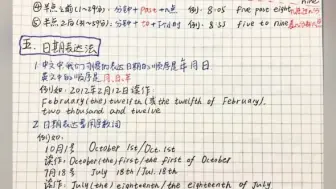 nine
④ 半点之前(1~29分): 分钟 + past + n点 例: 8:05 five past eight
⑤ 半点之后(31~59分): 分钟 + to + 下n小时 例: 8:55 five to nine
五. 日期表达法
1. 中文中我们习惯的表达日期的顺序是 年月日
英文中的顺序是 月,日,年
例如: 2012年2月12日读作
February (the) twelfth (或 the twelfth of February),
two thousand and twelve
2. 日期表达常用序数词
例如:
10月1号 October 1st/Oct. 1st
读作: October (the) first/the first of October
7月18号 July 18th/Jul. 18th
读作: July (the) eighteenth/the eighteenth of July